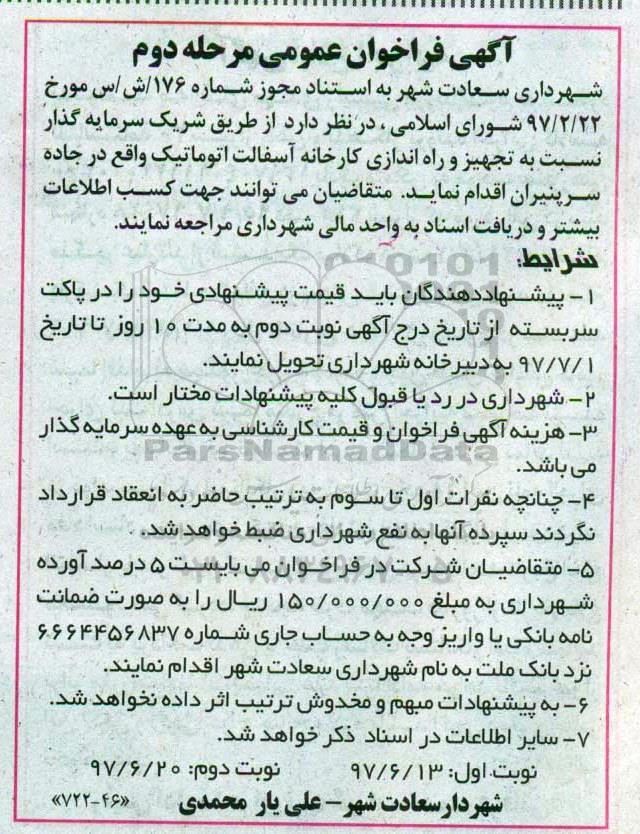 آگهی فراخوان عمومی مرحله دوم
شهرداری سعادت شهر به استناد مجوز شماره ۱۷۶/ش/س مورخ
۹۷/۲/۲۲ شورای اسلامی ، در نظر دارد از طریق شریک سرمایه گذار
نسبت به تجهیز و راه اندازی کارخانه آسفالت اتوماتیک واقع در جاده
سرپنیران اقدام نماید. متقاضیان می توانند جهت کسب اطلاعات
بیشتر و دریافت اسناد به واحد مالی شهرداری مراجعه نمایند.
شرایط:
۱- پیشنهاددهندگان باید قیمت پیشنهادی خود را در پاکت
سربسته از تاریخ درج آگهی نوبت دوم به مدت ۱۰ روز تا تاریخ
۹۷/۷/۱ به دبیرخانه شهرداری تحویل نمایند.
۲- شهرداری در رد یا قبول کلیه پیشنهادات مختار است.
۳- هزینه آگهی فراخوان و قیمت کارشناسی به عهده سرمایه گذار
می باشد.
۴- چنانچه نفرات اول تا سوم به ترتیب حاضر به انعقاد قرارداد
نگردند سپرده آنها به نفع شهرداری ضبط خواهد شد.
۵- متقاضیان شرکت در فراخوان می بایست ۵ درصد آورده
شهرداری به مبلغ ۱۵۰/۰۰۰/۰۰۰ ریال را به صورت ضمانت
نامه بانکی یا واریز وجه به حساب جاری شماره ۶۶۶۴۴۵۶۸۳۷
نزد بانک ملت به نام شهرداری سعادت شهر اقدام نمایند.
۶- به پیشنهادات مبهم و مخدوش ترتیب اثر داده نخواهد شد.
۷- سایر اطلاعات در اسناد ذکر خواهد شد.
نوبت اول: ۹۷/۶/۱۳ نوبت دوم: ۹۷/۶/۲۰
شهردار سعادت شهر- علی یار محمدی «۷۲۲-۴۶»
ParsNamadData